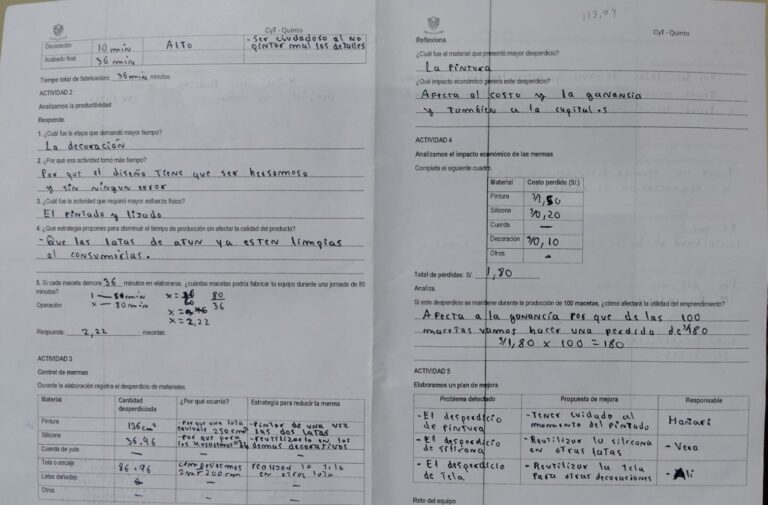 CyT - Quinto
Decoración 10 min ALTO - Ser ciudadoso al no
pintor mal los detalles
Acabado final 36 min
Tiempo total de fabricación: 36 min minutos.
ACTIVIDAD 2
Analizamos la productividad
Responde.
1. ¿Cuál fue la etapa que demandó mayor tiempo?
La decoración
2. ¿Por qué esa actividad tomó más tiempo?
Por que el diseño tiene que ser hersomoso
y sin ningun error
3. ¿Cuál fue la actividad que requirió mayor esfuerzo físico?
El pintado y lizado
4. ¿Qué estrategia propones para disminuir el tiempo de producción sin afectar la calidad del producto?
- Que las latas de atun ya esten limpias
al consumirlas.
5. Si cada maceta demora 36 minutos en elaborarse, ¿cuántas macetas podría fabricar tu equipo durante una jornada de 80
minutos?
Operación
x — 80 min
80
36
x = 2,22
Respuesta: 2,22 macetas.
ACTIVIDAD 3
Control de mermas
Durante la elaboración registra el desperdicio de materiales.
Material Cantidad desperdiciada ¿Por qué ocurrió? Estrategia para reducir la merma
Pintura 136 cm² - Por que una lata
equivale 250 cm² - Pintar de una vez
las dos latas
Silicona 36,96 - Por que para - Reutilizarlo en los
demas decorativos
Cuerda de yute — — —
Tela o encaje 86.96 la tela
en otras
Latas dañadas — —
Otros — — —
CyT - Quinto
Reflexiona.
¿Cuál fue el material que presentó mayor desperdicio?
La pintura
¿Qué impacto económico genera este desperdicio?
Afecta al costo y la ganancia
y tumbien a la capital.s
ACTIVIDAD 4
Analizamos el impacto económico de las mermas
Completa el siguiente cuadro.
Material Costo perdido (S/.)
Pintura S/1,50
Silicona S/0,20
Cuerda —
Decoración S/0,10
Otros —
Total de pérdidas: S/ 1,80
Analiza.
Si este desperdicio se mantiene durante la producción de 100 macetas, ¿cómo afectaría la utilidad del emprendimiento?
Afecta a la ganancia por que de las 100
macetas vamos hacer una perdida de S/180
S/1,80 x 100 = 180
ACTIVIDAD 5
Elaboramos un plan de mejora
Problema detectado Propuesta de mejora Responsable
- El desperdicio
de pintura - Tener cuidado al
momento del pintado Hañari
- El desperdicio
de silicona - Reutilizar la silicona
en otras latas - Vera
- El desperdicio
de Tela - Reutilizar la tela
para otras decoraciones - Ali
Reto del equipo